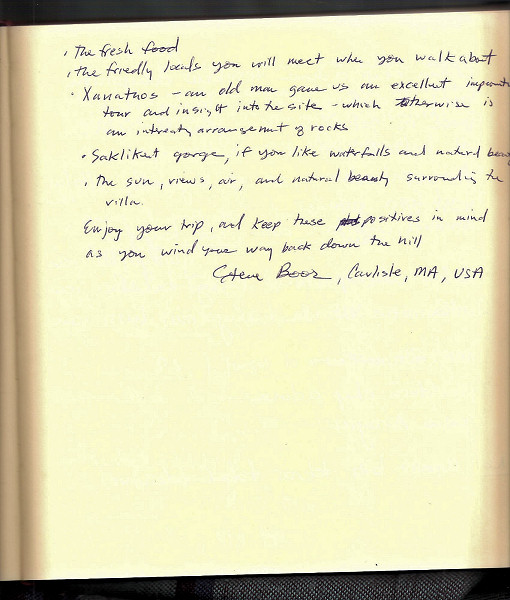 · The fresh food
· the friendly locals you will meet when you walk about
· Xanathos - an old man gave us an excellent
tour and insight into the site - which otherwise is
an interesting arrangement of rocks
· Saklikent gorge, if you like waterfalls and natural
· The sun, views, air, and natural beauty surrounding the
villa.
Enjoy your trip, and keep these positives in mind
as you wind your way back down the hill
Steve, Carlisle, MA, USA